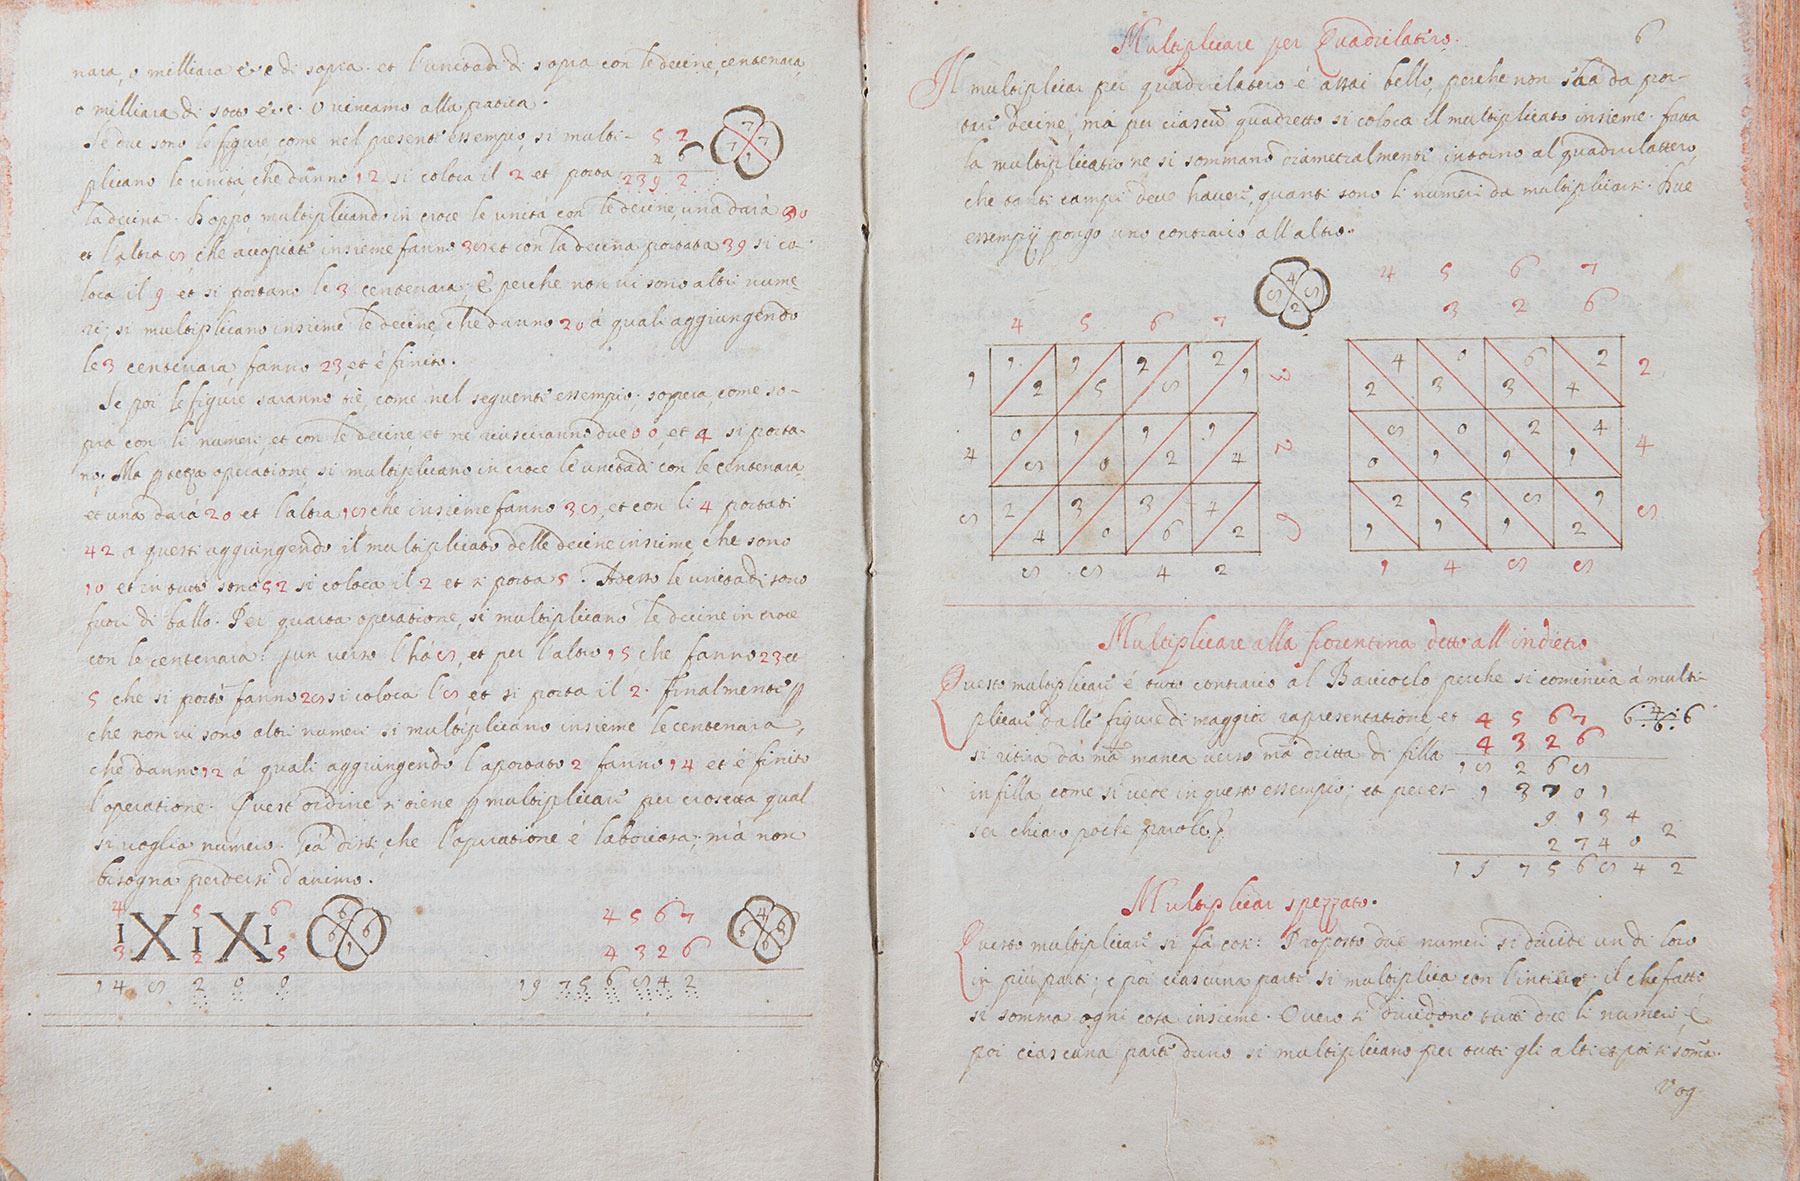 nara, o milliara etc di sopra. et l'unitadi di sopra con le decine, centenara,
o milliara di sotto etc. O veniamo alla pratica.
Se due sono le figure, come nel presente essempio, si multi- 5 2
plicano le unità, che danno 12 si coloca il 2 et porta 4 6
2 3 9 2
7 7 7 1
la decina. Doppo, multiplicando in croce le unità con le decine, una darà 30
et l'altra 8, che accopiate insieme fanno 38 et con la decina portata 39 si co-
loca il 9 et si portano le 3 centenara; E perche non vi sono altri nume
ri, si multiplicano insieme le decine, che danno 20 à quali aggiungendo
le 3 centenara, fanno 23, et è finito.
Se poi le figure saranno trè, come nel seguente essempio, s'opera, come so-
pra con li numeri, et con le decine, et ne riusciranno due 0 0, et 4 si porta-
no. Ma terza operatione, si multiplicano in croce le unitadi con le centenara
et una darà 20 et l'altra 18 che insieme fanno 38, et con li 4 portati
42 a questi aggiungendo il multiplicato delle decine insieme, che sono
10 et in tutto sono 52 si coloca il 2 et si porta 5. Adesso le unitadi sono
fuori di ballo. Per quarta operatione, si multiplicano le decine in croce
con le centenara: l'un verso l'hà 8, et per l'altro 15 che fanno 23 et
5 che si portò fanno 28 si coloca l'8 et si porta il 2. Finalmente p
che non vi sono altri numeri si multiplicano insieme le centenara,
che danno 12 à quali aggiungendo l'aportato 2 fanno 14 et è finito
l'operatione. Quest'ordine si tiene p multiplicare per crosetta qual
si voglia numero. Già dissi, che l'operatione è laboriosa; mà non
bisogna perdersi d'animo.
4 5 6
I X I X I
3 2 5
6 6 6 1
1 4 8 2 0 0
4 5 6 7
4 3 2 6
4 6 6 6
1 9 7 5 6 8 4 2
Multiplicare per Quadrilatero. 6
Il multiplicar per quadrilatero è assai bello, perche non s'hà da por-
tare decine, mà per ciascun quadretto si coloca il multiplicato insieme. fatta
la multiplicatione si sommano diametralmente intorno al quadrilattero,
che tanti campi deve havere, quanti sono li numeri da multiplicarsi. Due
essempij pongo uno contrario all'altro.
4 8 8 2
4 5 6 7
3 2 6
4 5 6 7
1 1 2 1 5 2 8 2 1 3
4 0 8 1 0 1 2 1 4 2
8 2 4 3 0 3 6 4 2 9
8 8 4 2
4 2 0 3 6 3 2 4 2
8 0 0 1 2 1 4 1 4
2 1 5 1 8 1 1 2 8
1 4 8 8
Multiplicare alla fiorentina detto all'indietro
Questo multiplicare è tutto contrario al Baricoclo perche si comincia à multi-
plicare dalle figure di maggior rapresentatione et 4 5 6 7 6 4 6 6
si ritira da man manca verso man dritta di filla 4 3 2 6
in filla come si vede in questo essempio: et per es- 1 8 2 6 8
ser chiaro poche parole. 1 3 7 0 1
9 1 3 4
2 7 4 0 2
1 9 7 5 6 8 4 2
Multiplicar spezzato.
Questo multiplicare si fà così: Proposto due numeri si divide un di loro
in più parti; e poi ciascuna parte si multiplica con l'intiero. il che fatto
si somma ogni cosa insieme. Overo si dividono tutti due li numeri, è
poi ciascuna parte d'uno si multiplicano per tutti gli altri et poi si soma.
Vog-